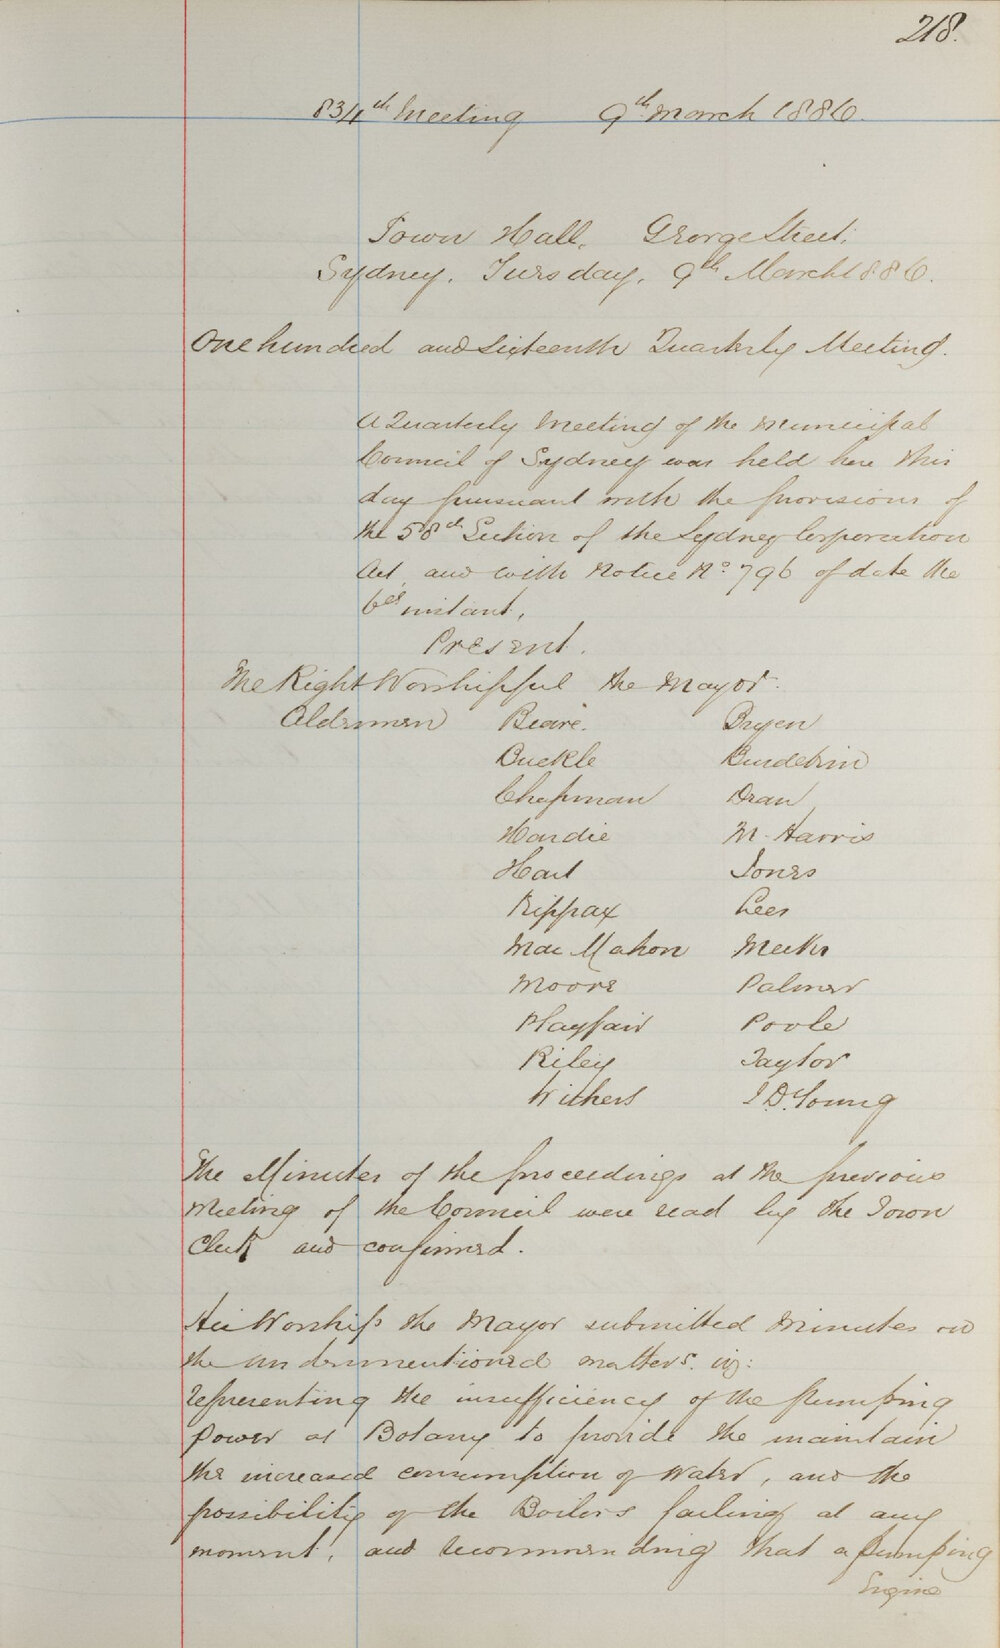 218.
834th Meeting 9th March 1886.
Town Hall, George Street,
Sydney, Tuesday, 9th March 1886.
One hundred and sixteenth Quarterly Meeting.
A Quarterly Meeting of the Municipal
Council of Sydney was held here this
day pursuant with the provisions of
the 58th Section of the Sydney Corporation
Act, and with Notice No. 796 of date the
6th instant.
Present.
The Right Worshipful the Mayor.
Aldermen Beare. Dryen
Buckle Burdekin
Chapman Dean
Hardie M. Harris
Hart Jones
Kippax Lees
Mac Mahon Meeks
Moore Palmer
Playfair Poole
Riley Taylor
Withers J. D. Young
The Minutes of the proceedings at the previous
Meeting of the Council were read by the Town
Clerk and confirmed.
His Worship the Mayor submitted Minutes on
the undermentioned matters. viz:
representing the insufficiency of the pumping
power at Botany to provide the maintain
the increased consumption of water, and the
possibility of the Boilers failing at any
moment, and recommending that a pumping
Engine